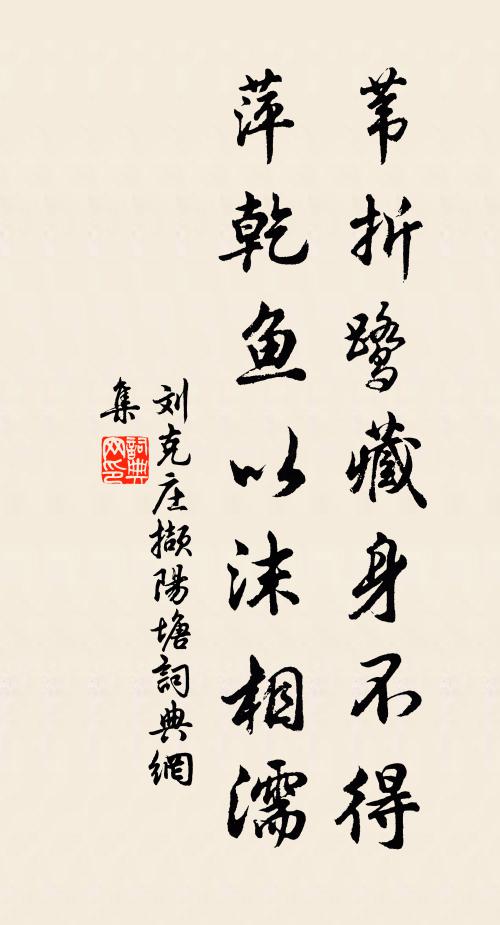 苇折鹭藏身不得
萍乾鱼以沫相濡
刘克庄撷陽塘詞典網
集
詞典
网印